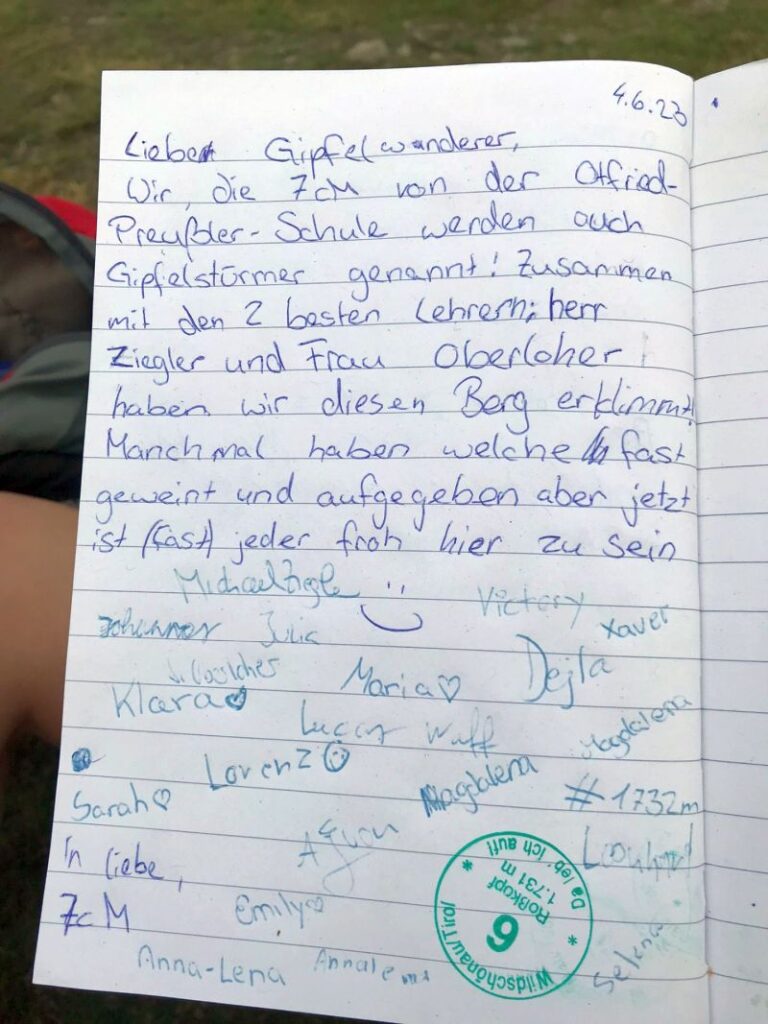 4.6.23
Lieber Gipfelwanderer,
Wir, die 7cM von der Otfried-
Preußler-Schule werden auch
Gipfelstürmer genannt! Zusammen
mit den 2 besten Lehrern; herr
Ziegler und Frau Oberloher
haben wir diesen Berg erklimmt!
Manchmal haben welche fast
geweint und aufgegeben aber jetzt
ist (fast) jeder froh hier zu sein
Michael Ziegler
Victory
Johannes Julia Xaver
Maria♡ Dejla
Klara♥
Lucas Wulf Magdalena
Lorenz☺
Magdalena #1732m
Sarah♡
In liebe,
7cM
Emily♡
Anna-Lena
Selena
Wildschönau/Tirol
6
Roßkopf
1.731 m
Da leb' ich auf!